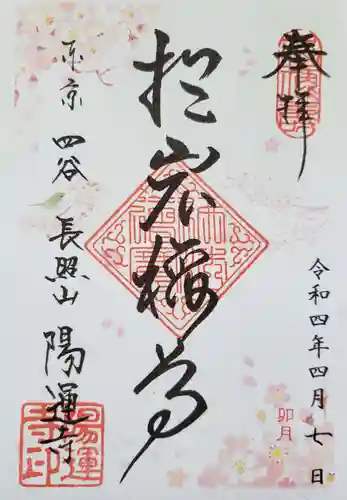 奉拝
令和四年四月七日
卯月
於岩稲荷
東京 四谷 長照山 陽運寺
陽運寺印